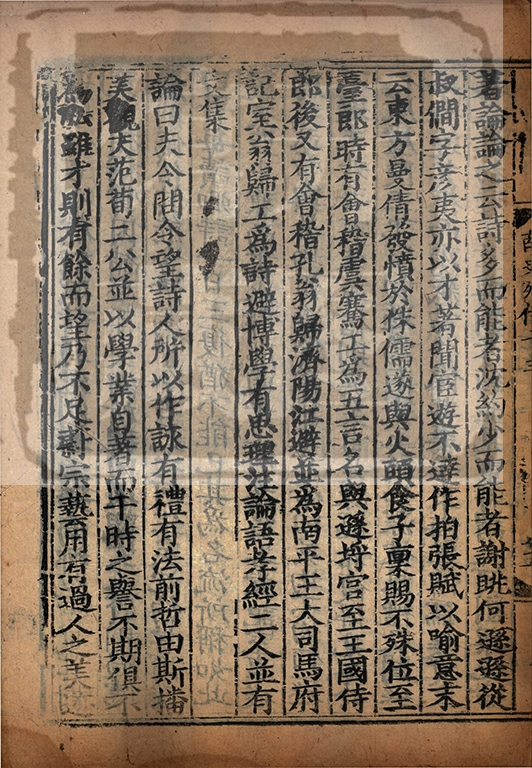 著論論之云詩多而能者沈約少而能者謝眺何遜遜從
叔僩字彥夷亦以才著聞宦遊不達作拍張賦以喻意末
云東方曼倩發憤於侏儒遂與火頭食子稟賜不殊位至
臺郎時有會稽虞騫工為五言名與遜埒官至王國侍
郎後又有會稽孔翁歸濟陽江避並為南平王大司馬府
記室翁歸工為詩避博學有思理注論語孝經二人並有
文集
論曰夫令問令望詩人所以作詠有禮有法前哲由斯播
美觀夫范荀二公並以學業自著而干時之譽不期俱不
為雖才則有餘而望乃不足蔚宗藝用有過人之美